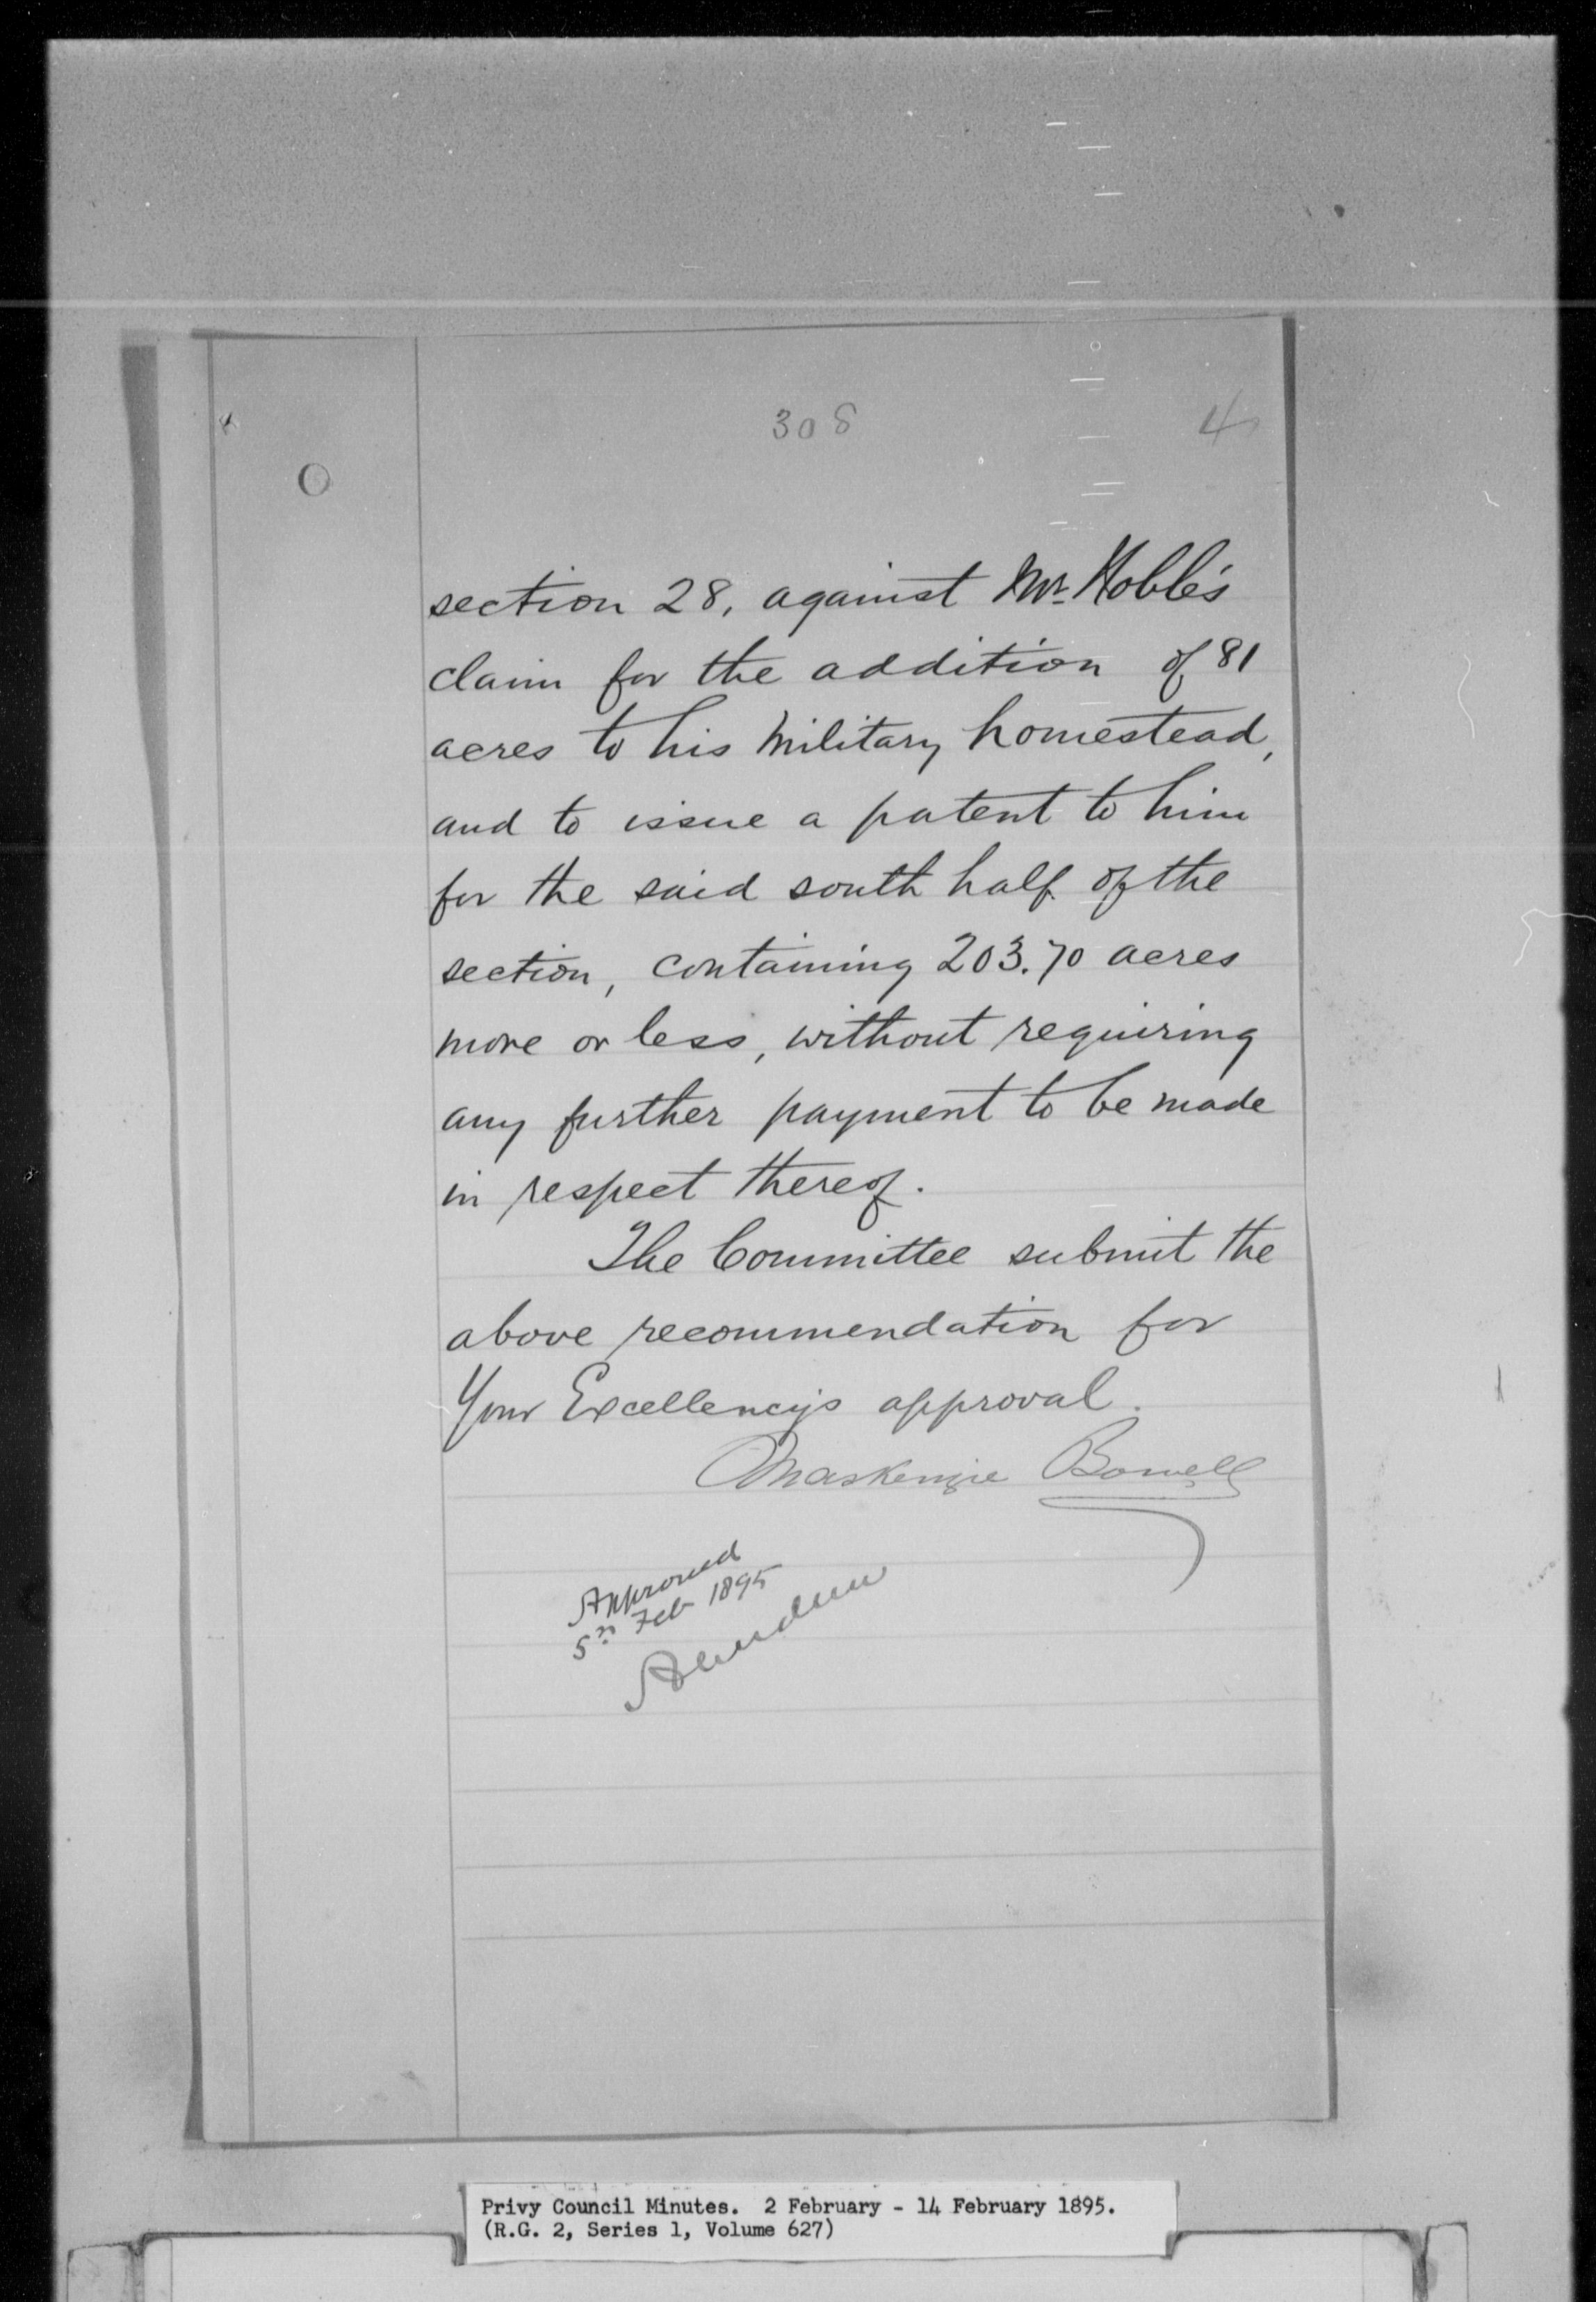 308 4
section 28, against Mr. Hoble's
claim for the addition of 81
acres to his Military homestead,
and to issue a patent to him
for the said south half of the
section, containing 203.70 acres
more or less, without requiring
any further payment to be made
in respect thereof.
The Committee submit the
above recommendation for
Your Excellency's approval.
Mackenzie Bowell
Approved
5th Feb 1895
Aberdeen
Privy Council Minutes. 2 February - 14 February 1895.
(R.G. 2, Series 1, Volume 627)